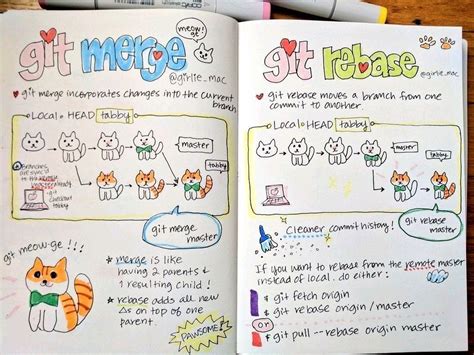 git merge
meow!
@girlie_mac
git merge incorporates changes into the current
branch
Local HEAD tabby
master
tabby
Branches
are sync'd
to the remote
git
checkout
tabby
git merge
master
git meow-ge !!!
merge is like
having 2 parents &
1 resulting child!
rebase adds all new
Δs on top of one
parent.
PAWSOME!
git rebase
@girlie_mac
git rebase moves a branch from one
commit to another.
Local HEAD tabby
master
tabby
git rebase
master
Cleaner commit history!
If you want to rebase from the remote master
instead of local, do either:
$ git fetch origin
$ git rebase origin/master
or
$ git pull --rebase origin master